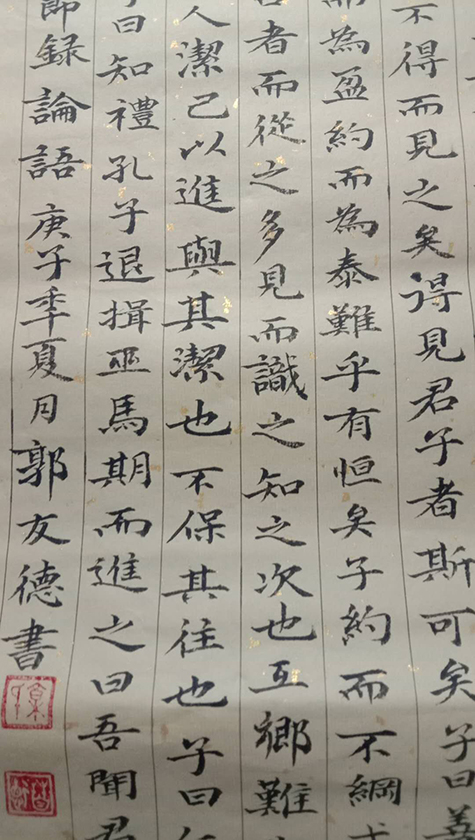 不得而見之矣得見君子者斯可矣子曰善
而為盈約而為泰難乎有恒矣子約而不綱弋
者而從之多見而識之知之次也互鄉難
人潔己以進與其潔也不保其往也子曰
曰知禮孔子退揖巫馬期而進之曰吾聞君
節録論語 庚子季夏月郭友德書